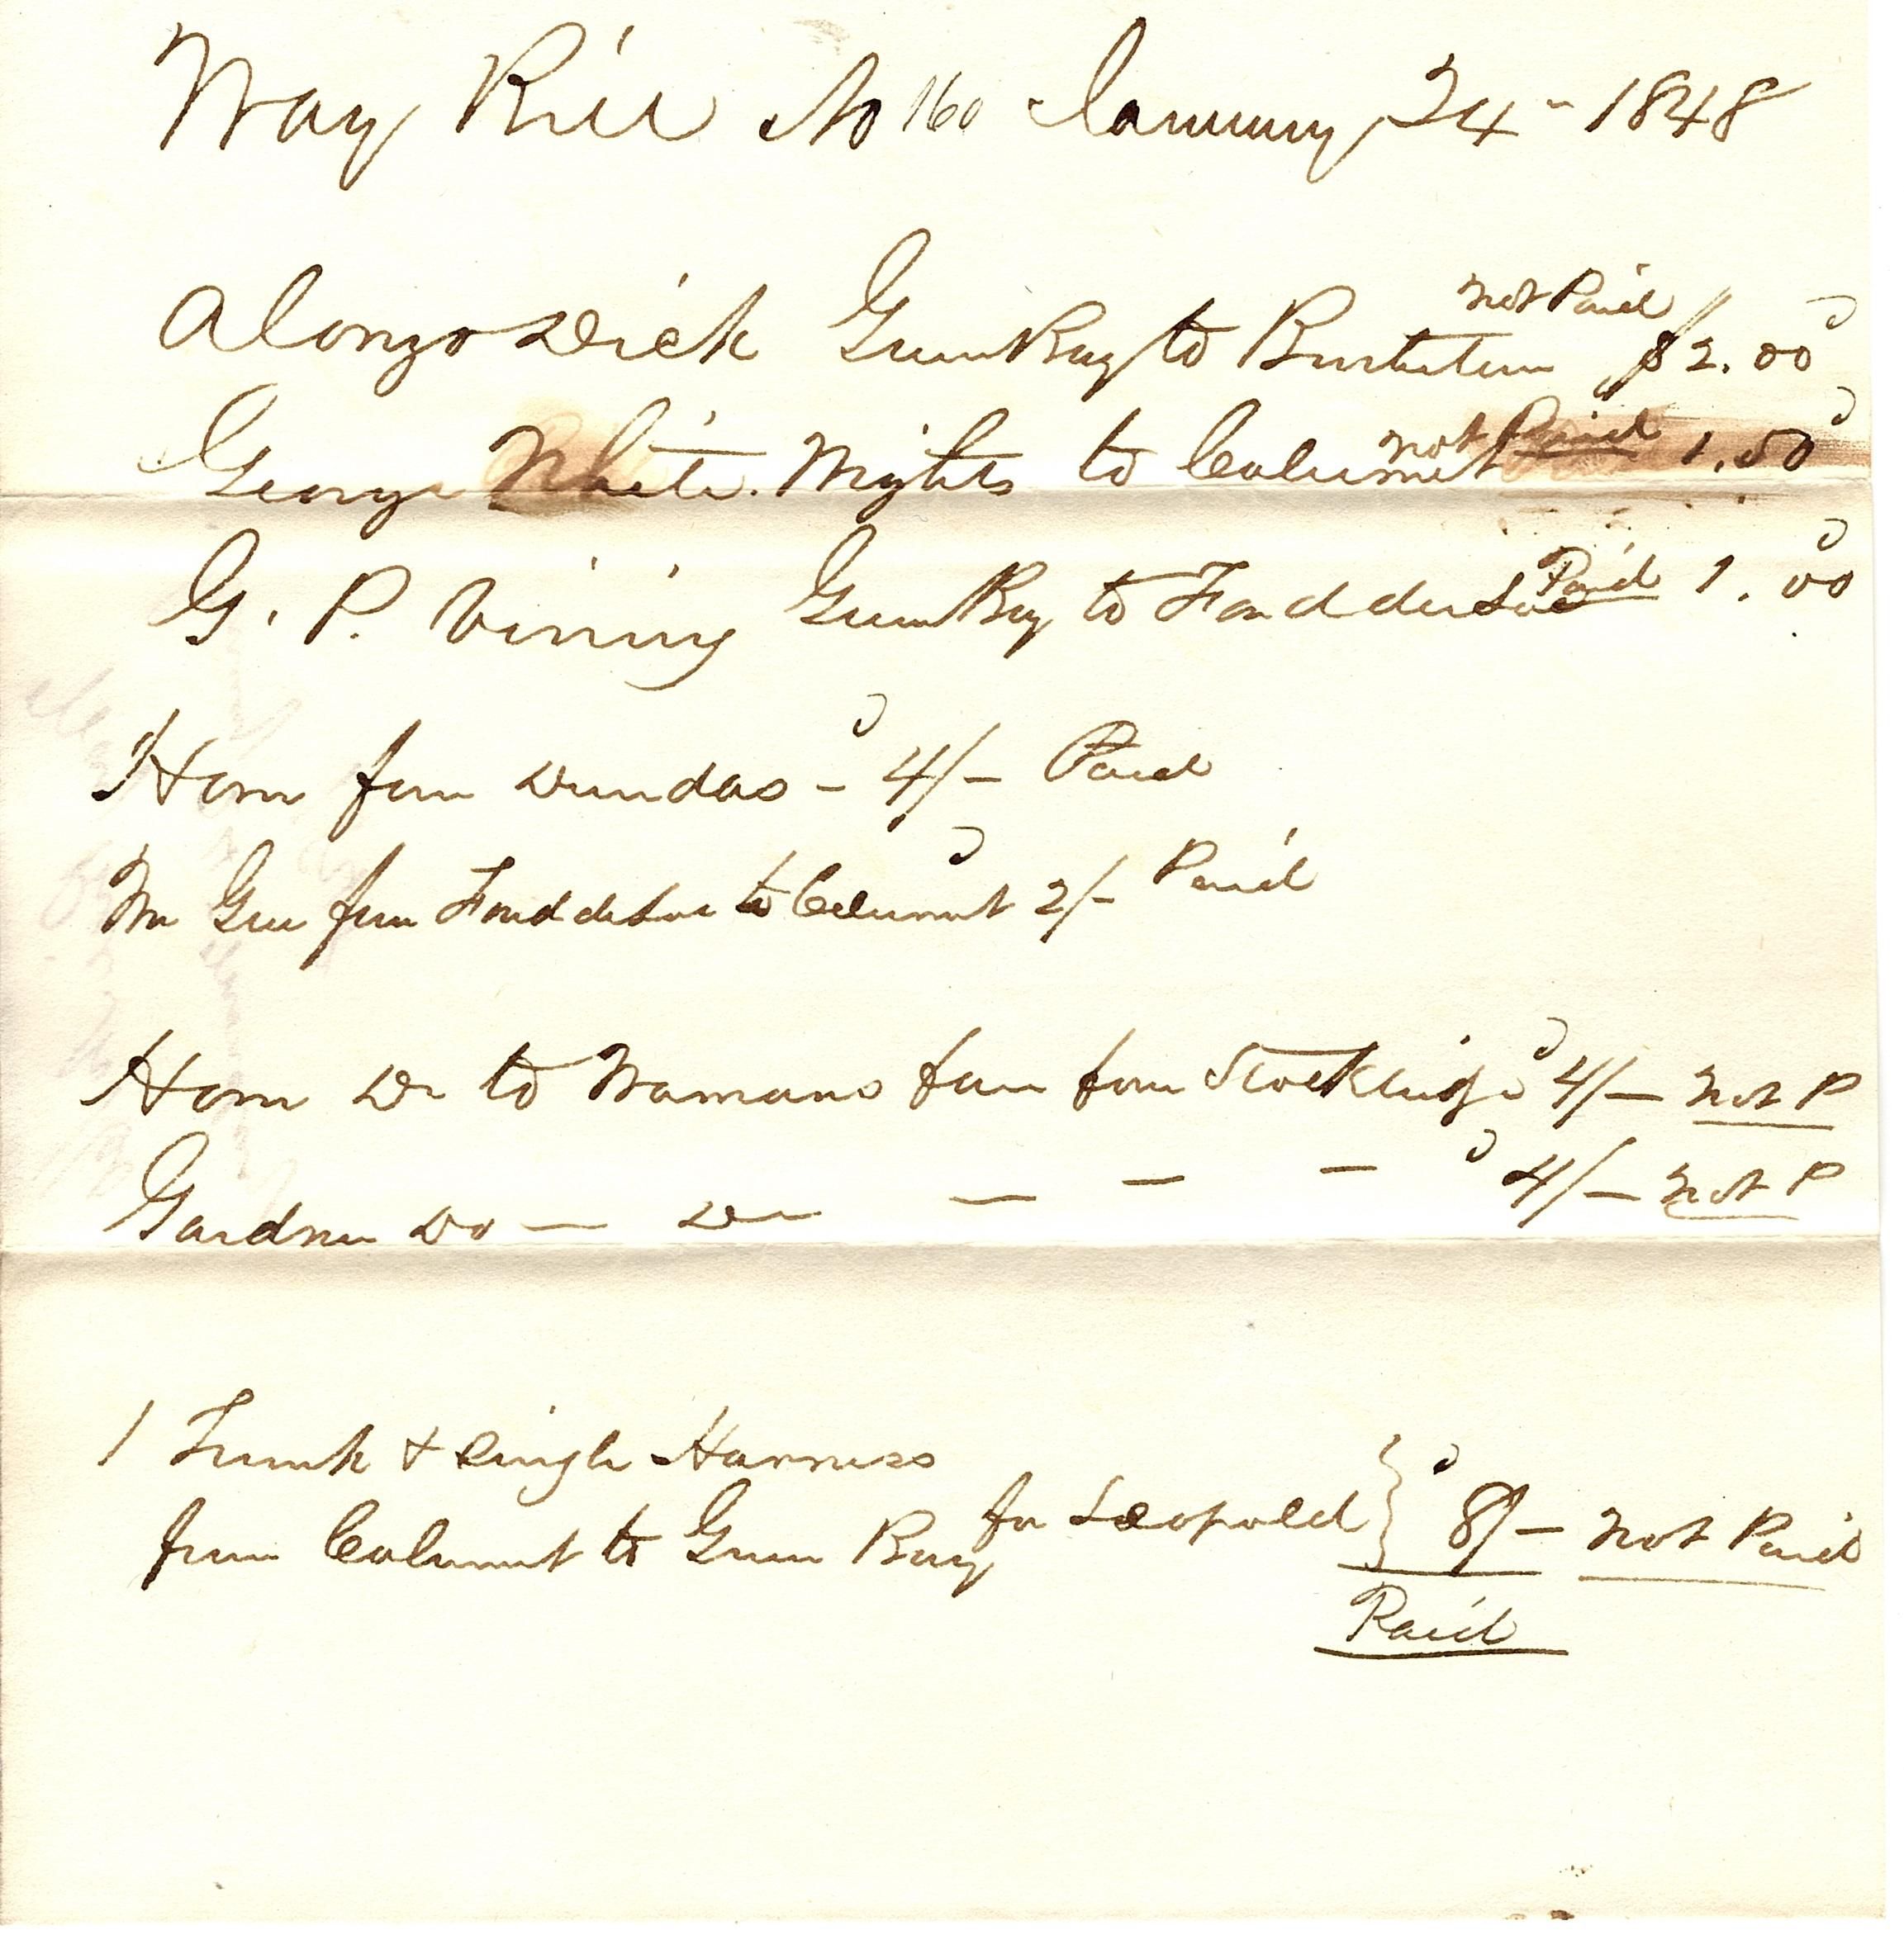 Way Bill No 160 January 24 - 1848
Alonzo Dick Green Bay to Brothertown not Paid $2.00
George White. Wrights to Calumet not Paid 1.50
G. P. Vining Green Bay to Fond du Lac Paid 1.00
Horn from Dundas - 4/- Paid
Mr Gee from Fond du Lac to Calumet 2/- Paid
Horn Do to from Stockbridge 4/- not P
Gardner Do — Do — — — 4/- not P
1 Trunk & Single Harness
from Calumet to Green Bay for Leopold } 8/- not Paid
Paid